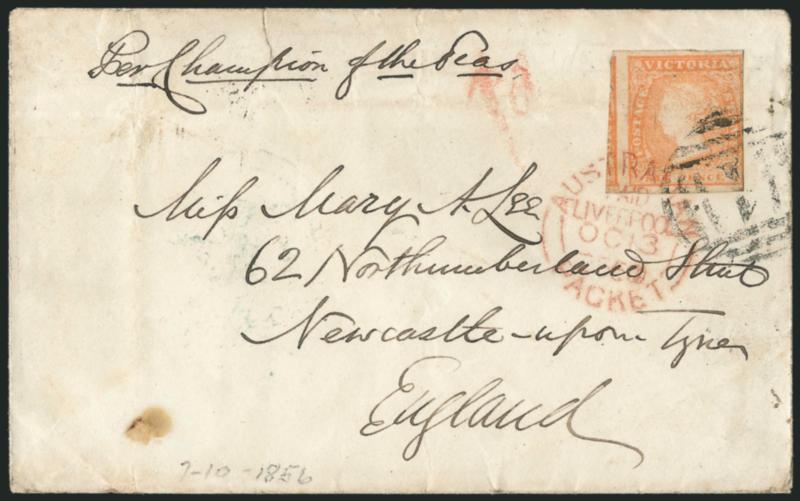 Per Champion of the Seas
VICTORIA
POSTAGE
PENCE
AUSTRA
PAID
LIVERPOOL
OC 13
ACKET
Miss Mary A. Lee
62 Northumberland Street
Newcastle-upon Tyne
England
7-10-1856